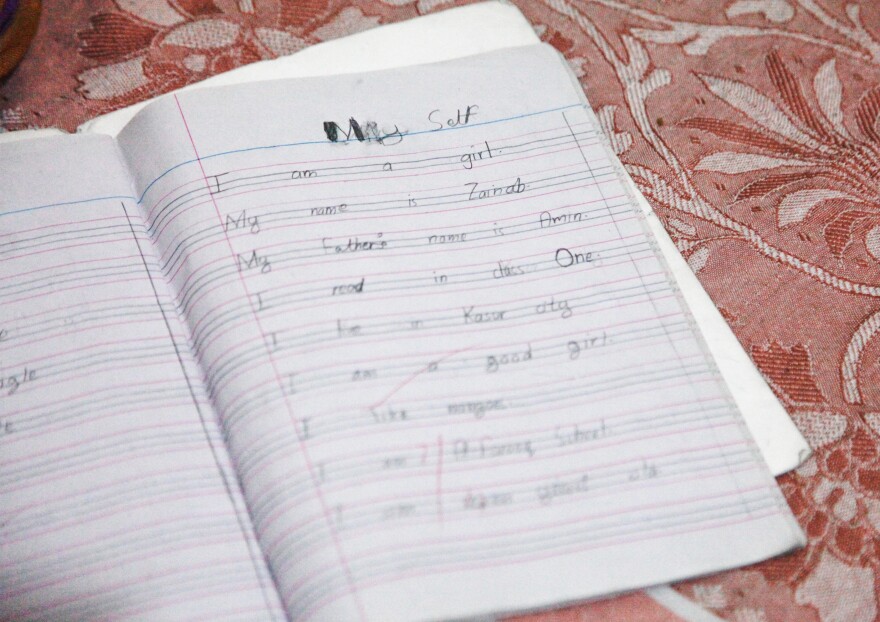 My Self
I am a girl.
My name is Zainab.
My Father's name is Amin.
I read in class One.
I live in Kasur city
I am a good girl.
I like mangoe.
I am 7 Al Farooq School.
I am
gle